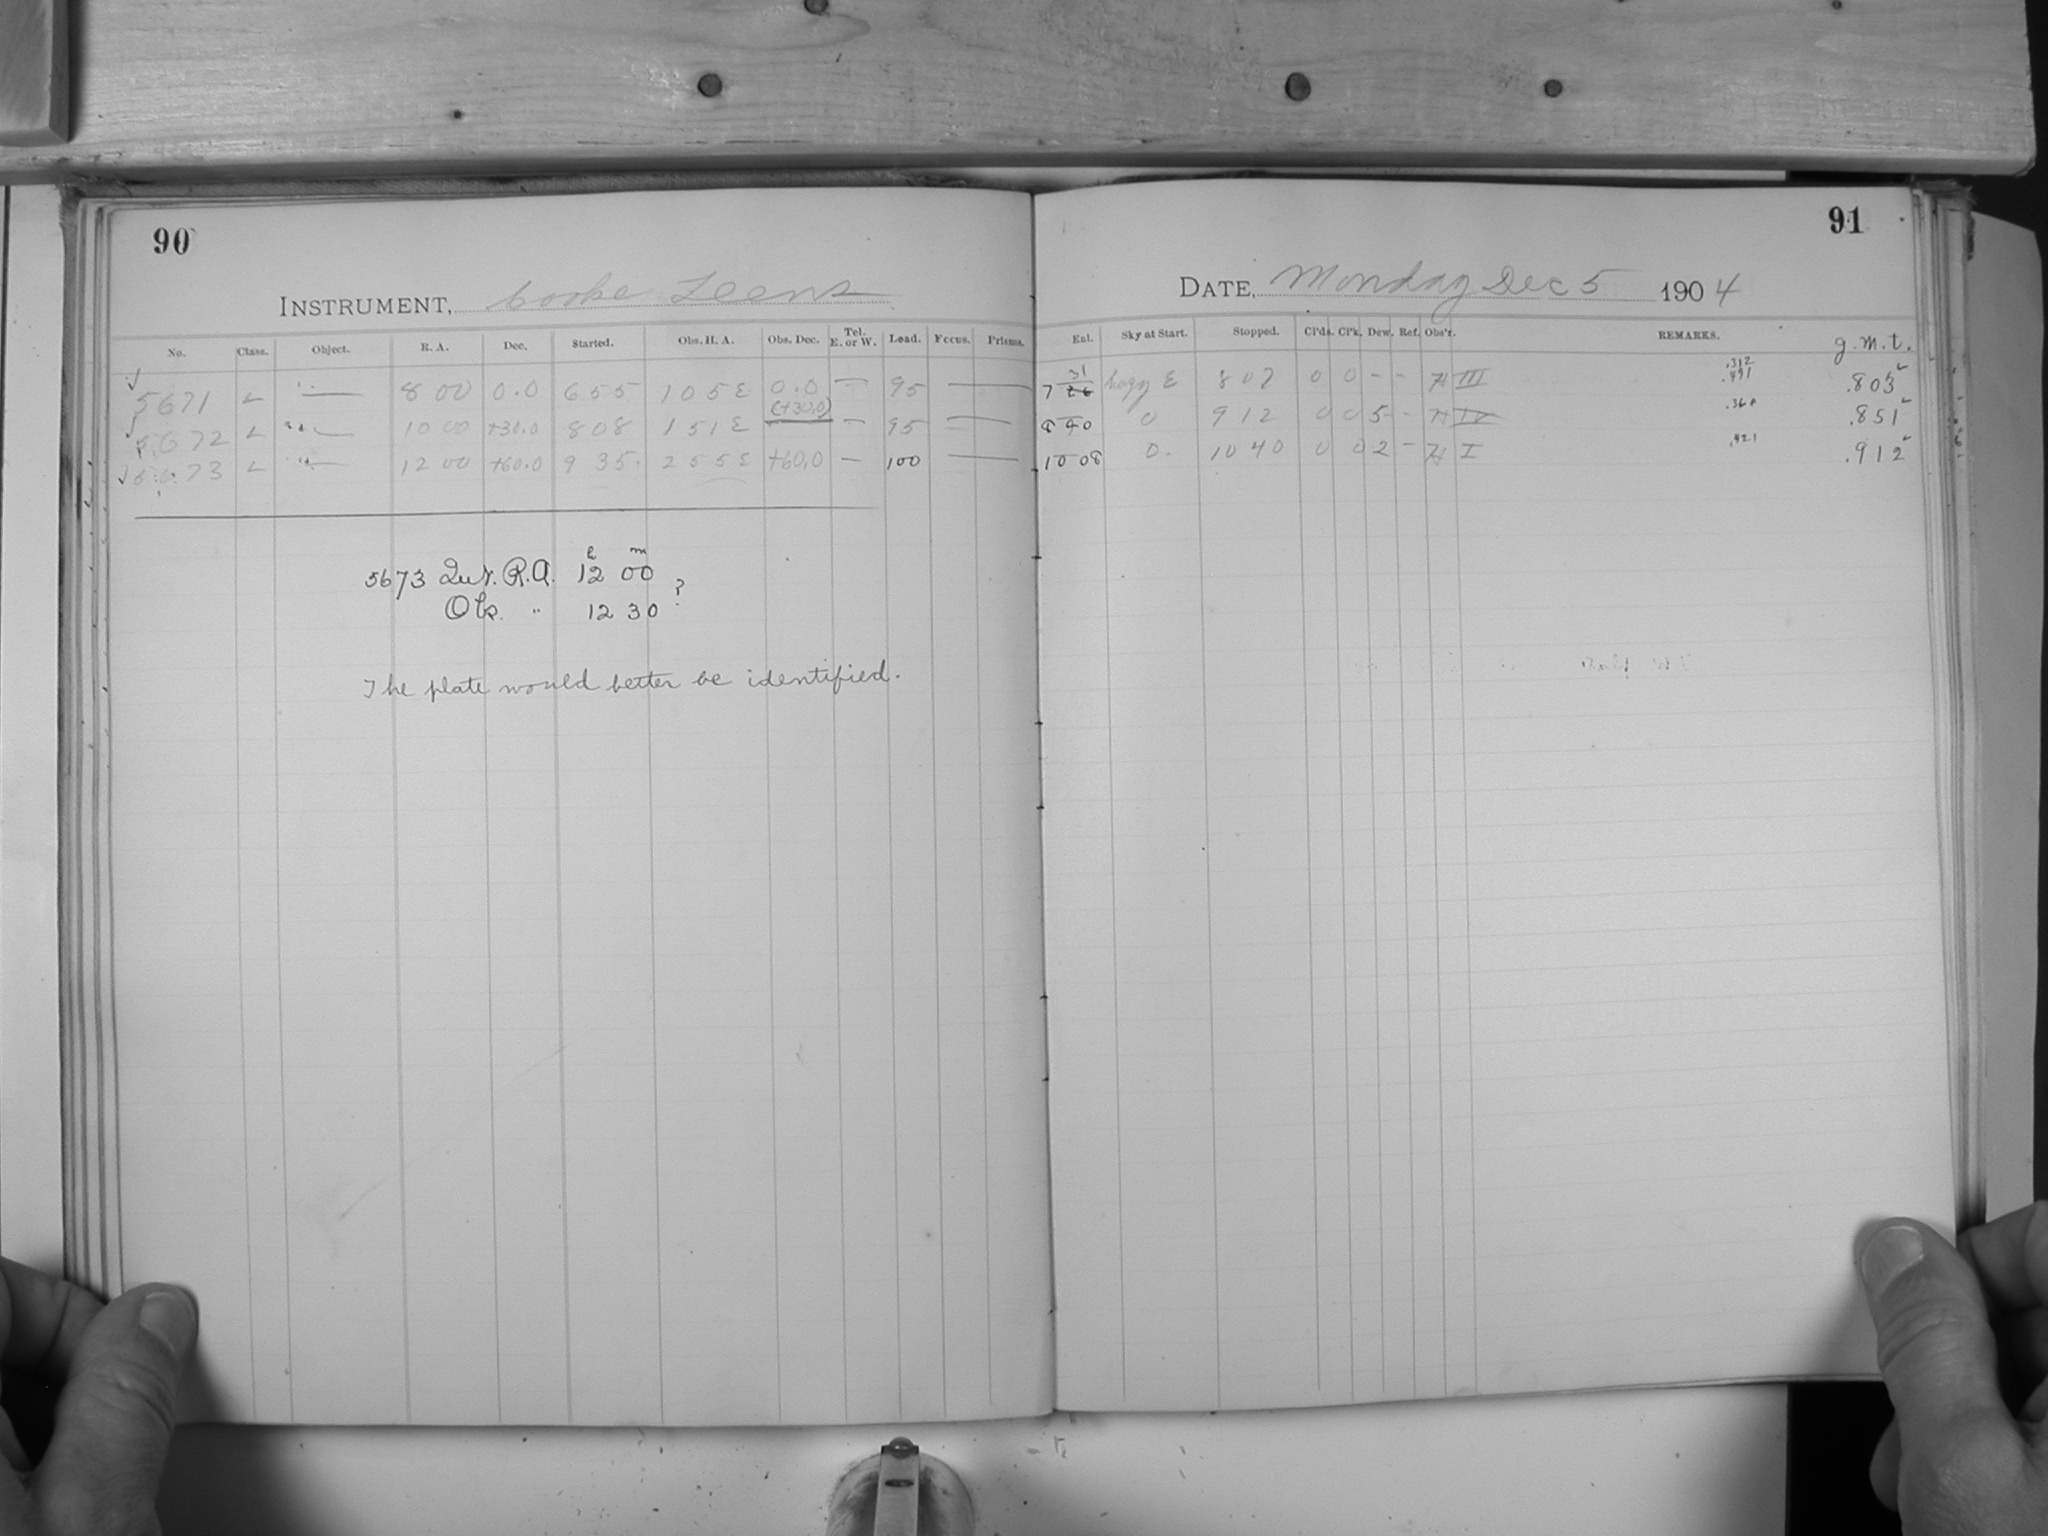 90
91
INSTRUMENT, Cooke Lens
DATE, Monday Dec 5 1904
No. Class. Object. R. A. Dec. Started. Obs. H. A. Obs. Dec. Tel. E. or W. Lead. Focus. Prisms. Enl. Sky at Start. Stopped. Cl'ds. Cl'k. Dew. Ref. Obs'r. REMARKS. g.m.t.
5671 L " — 8 00 0.0 6 55 1 05 E 0.0 — 95 — 7 26 31 hazy E 8 07 0 0 - - H III .312 .491 .803
5672 L " — 10 00 +30.0 8 08 1 51 E (+30.0) — 95 — 8 40 0 9 12 0 0 5 - H IV .360 .851
5673 L " — 12 00 +60.0 9 35 2 55 E +60.0 — 100 — 10 08 0. 10 40 0 0 2 - H I .421 .912
h m
5673 R.A. 12 00
Obs. " 12 30 ?
The plate would better be identified.